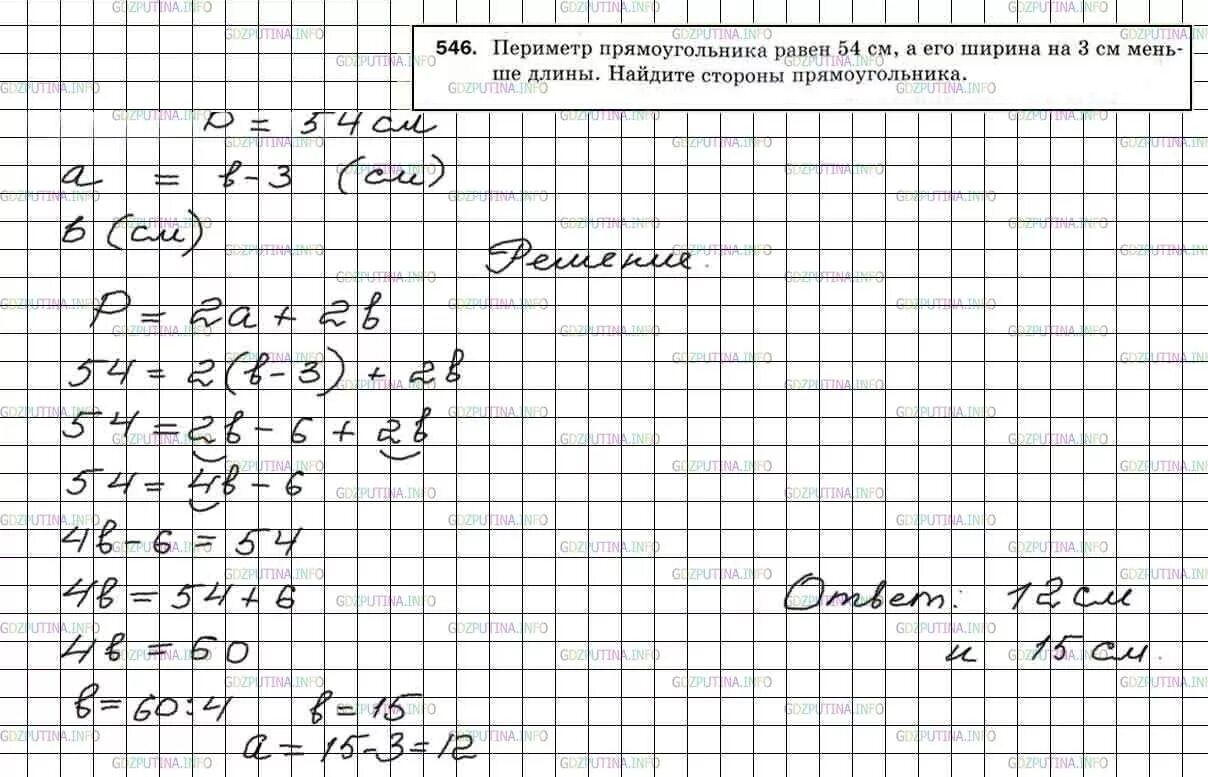 546. Периметр прямоугольника равен 54 см, а его ширина на 3 см мень-
ше длины. Найдите стороны прямоугольника.
P = 54 см
a = b - 3 (см)
b (см)
Решение.
P = 2a + 2b
54 = 2(b - 3) + 2b
54 = 2b - 6 + 2b
54 = 4b - 6
4b - 6 = 54
4b = 54 + 6
4b = 60
b = 60 : 4 b = 15
a = 15 - 3 = 12
Ответ: 12 см
и 15 см.
GDZPUTINA.INFO